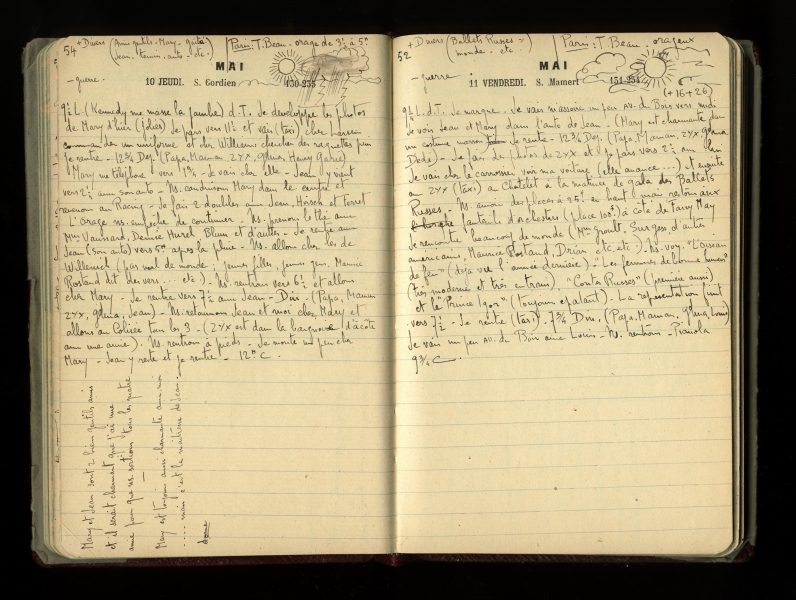 54
+ Divers (Amis gentils - Mary - gaîté)
Jean. tennis. auto - etc.
Paris: T. Beau - orage de 3½ à 5h
MAI
- guerre.
10 JEUDI. S. Gordien
130-235
9½ L. (Kennedy me masse la jambe) d. T. Je développe les photos
de Mary d'hier (jolies) Je pars vers 11½ et vais (taxi) chez
commander un uniforme et chez Williams chercher des raquettes puis
Je rentre - 12¾ Dej. (Papa, Maman, 2yx, gduna, Henry
Mary me téléphone vers 1¾ - je vais chez elle - Jean y vient
vers 2½ avec son auto - Ns. conduisons Mary dans le centre et
revenons au Racing - Je fais 2 doubles avec Jean, Hirsch et Ferret
L'orage ns. empêche de continuer - Ns. prenons le thé avec
Mme Vaussard, Denise Hurel Blum et d'autres - Je rentre avec
Jean (son auto) vers 5h après la pluie - Ns. allons chez les de
Willencil (pas mal de monde; jeunes filles, jeunes gens, Maurice
Rostand dit des vers ... etc.). Ns. rentrons vers 6½ et allons
chez Mary - Je rentre vers 7½ avec Jean - Din. (Papa, Maman
2yx, gduna, Jean) - Ns. retournons Jean et moi chez Mary et
allons au Colisée tous les 3 - (2yx est dans la baignoire d'à côté
avec une amie). Ns. rentrons à pieds - Je monte un peu chez
Mary - Jean y reste et je rentre - 12h C.
Mary et Jean sont 2 bien gentils amis
et il serait charmant que j'ai une
amie pour que ns. sortions tous les quatre
Mary est toujours aussi charmante avec moi
.... mais c'est la maîtresse de Jean.
52
+ Divers (Ballets Russes =
monde - etc.)
Paris: T. Beau - orageux
MAI
- guerre
11 VENDREDI. S. Mamert
131-234
(+16+26)
9½ L. d. T. Je marque. Je vais m'asseoir un peu Av. du Bois vers midi
Je vois Jean et Mary dans l'auto de Jean - (Mary est charmante dans
un costume marron Je rentre - 12¾ Dej. (Papa, Maman, 2yx gduna,
Dédé) - Je fais des photos de 2yx et je pars vers 2½ avec
Je vais chez le carrossier voir ma voiture (elle avance ...) et ensuite
avec 2yx (taxi) au Châtelet à la matinée de gala des Ballets
Russes - Ns. avons des places à 25f en haut mais restons aux
fauteuils d'orchestre (place 100f) à côté de Fairy May
Je rencontre beaucoup de monde (Mme Groult, Surgess, d'autres
américains, Maurice Rostand, Drian etc. etc.) - Ns. voy. "L'oiseau
de feu" (déjà vu l'année dernière) - "Les femmes de bonne humeur"
(très moderne et très entrain) - "Contes Russes" (première aussi)
et le "Prince Igor" (toujours épatant). La représentation finit
vers 7½ - Je rentre (taxi) - 7¾ Din. (Papa, Maman, gduna, Louis)
Je vais un peu Av. du Bois avec Louis - Ns. rentrons - Pianola
9¾ C